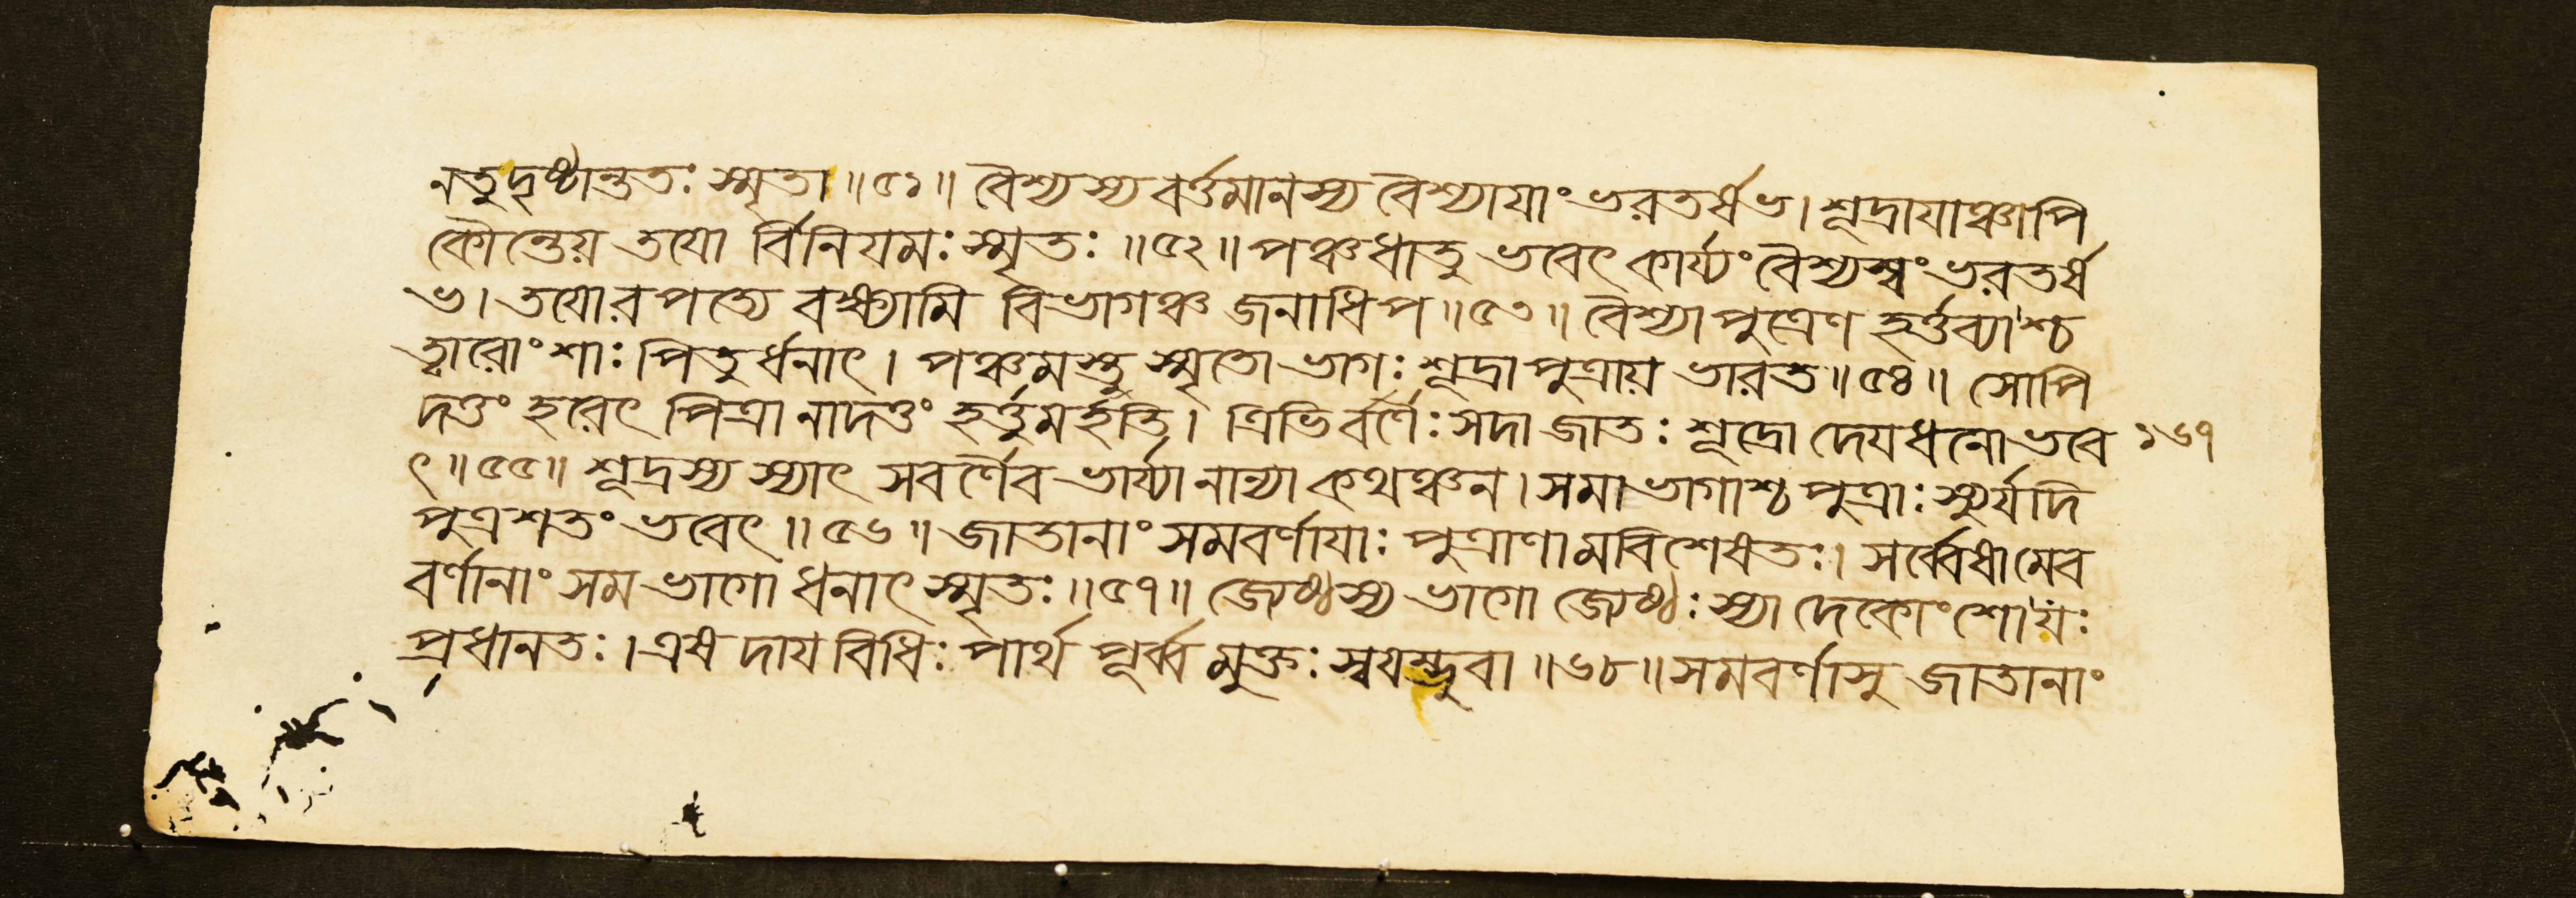 নতুদৃষ্টান্ততঃ স্মৃতা॥৫১॥ বৈশ্যস্য বর্ত্তমানস্য বৈশ্যাযাং ভরতর্ষভ। শূদ্রাযাঞ্চাপি
কৌন্তেয় তযো র্বিনিযমঃ স্মৃতঃ॥৫২॥ পঞ্চধাতু ভবেৎ কার্য্যং বৈশ্যস্বং ভরতর্ষ
ভ। তযোরপত্যে বক্ষ্যামি বিভাগঞ্চ জনাধিপ॥৫৩॥ বৈশ্যাপুত্রেণ হর্ত্তব্যাশ্চ
ত্বারোংশাঃ পিতুর্ধনাৎ। পঞ্চমস্তু স্মৃতো ভাগঃ শূদ্রাপুত্রায় ভারত॥৫৪॥ সোপি
দত্তং হরেৎ পিত্রা নাদত্তং হর্ত্তুমর্হতি। ত্রিভির্বর্ণৈঃ সদা জাতঃ শূদ্রো দেযধনো ভবে ১৬৭
ৎ॥৫৫॥ শূদ্রস্য স্যাৎ সবর্ণৈব ভার্য্যা নান্যা কথঞ্চন। সমাভাগাশ্চ পুত্রাঃ স্যুর্যদি
পুত্রশতং ভবেৎ॥৫৬॥ জাতানাং সমবর্ণাযাঃ পুত্রাণামবিশেষতঃ। সর্ব্বেষামেব
বর্ণানাং সমভাগো ধনাৎ স্মৃতঃ॥৫৭॥ জ্যেষ্ঠস্য ভাগো জ্যেষ্ঠঃ স্যা দেকোংশো যঃ
প্রধানতঃ। এষ দাযবিধিঃ পার্থ পূর্ব্বমুক্তঃ স্বযম্ভুবা॥৬৮॥ সমবর্ণাসু জাতানাং